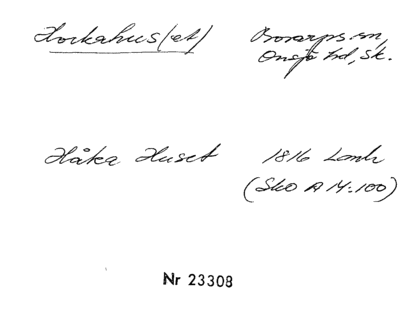 Horkahus(et) Bosarps sn,
Onsjö hd, Sk.
Håka Huset 1816 Lantm
(Sko A 14:100)
Nr 23308